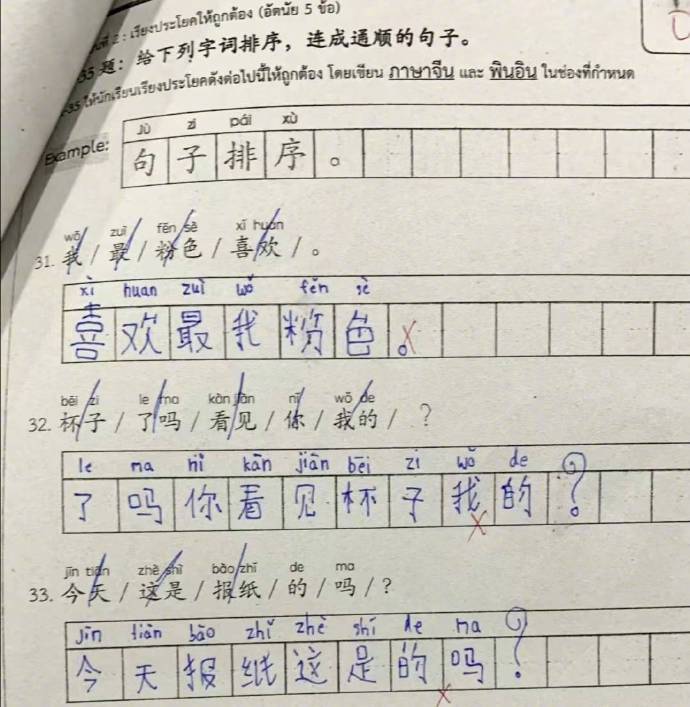 ที่ 2 : เรียงประโยคให้ถูกต้อง (อัตนัย 5 ข้อ)
35 题：给下列字词排序，连成通顺的句子。
35 ให้นักเรียนเรียงประโยคดังต่อไปนี้ให้ถูกต้อง โดยเขียน ภาษาจีน และ พินอิน ในช่องที่กำหนด
Jù zi pái xù
Example: 句子排序。
wǒ zuì fěn sè xǐ huan
31. 我 / 最 / 粉色 / 喜欢 / 。
xǐ huan zuì wǒ fěn sè
喜欢最我粉色。
bēi zi le ma kàn jiàn nǐ wǒ de
32. 杯子 / 了吗 / 看见 / 你 / 我的 / ？
le ma nǐ kān jiàn bēi zi wǒ de
了吗你看见杯子我的？
jīn tiān zhè shì bào zhǐ de ma
33. 今天 / 这是 / 报纸 / 的 / 吗 / ？
jīn tiān bāo zhǐ zhè shí de ma
今天报纸这是的吗？